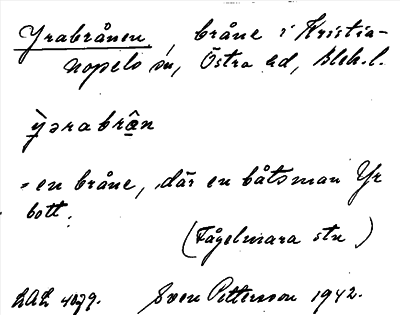 Yrabrånen, bråne i Kristia-
nopels sn, Östra hd, Blek.l.
ỳərabrân
= en bråne, där en båtsman Yr
bott.
(Fågelmara stn)
LAL 4079. Sven Pettersson 1942.